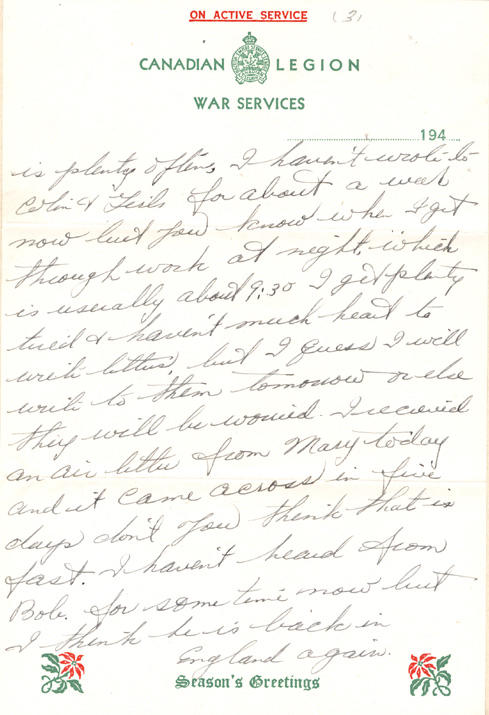 ON ACTIVE SERVICE (3)
CANADIAN LEGION
WAR SERVICES
194
is plenty often, I haven't wrote to
Colin & for about a week
now but you know when I get
through work at night, which
is usually about 9:30 I get plenty
tired & haven't much heart to
write letters, but I guess I will
write to them tomorrow or else
they will be worried. I received
an air letter from Mary today
and it came across in five
days don't you think that is
fast. I haven't heard from
Bob. for some time now but
I think he is back in
England again.
Season's Greetings